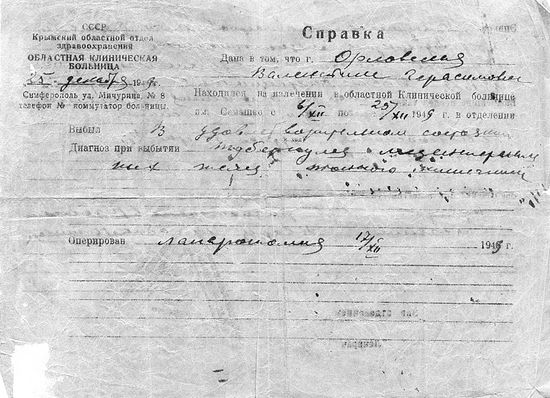 СССР
Крымский областной отдел
здравоохранения
ОБЛАСТНАЯ КЛИНИЧЕСКАЯ
БОЛЬНИЦА
25 декабря 1949 г.
Симферополь ул. Мичурина, № 8
телефон № коммутатор больницы.
Справка
Дана в том, что г. Орловская
Валентине Герасимовне
Находился на излечении в областной Клинической больнице
им. Семашко с 6/XII по 25/XII 1949 г. в отделении
Выбыл в удовлетворительном состоянии
Диагноз при выбытии Туберкулез мезентериаль
ных желез тонкого кишечника
Оперирован лапаротомия 17/XII 1949 г.